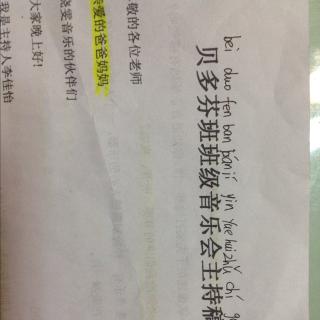 bei duo fen ban bānjí yin yue hui zhǔ chí g
贝多芬班班级音乐会主持稿
敬的各位老师
亲爱的爸爸妈妈
晓雯音乐的伙伴们
大家晚上好!
我是主持人李佳怡